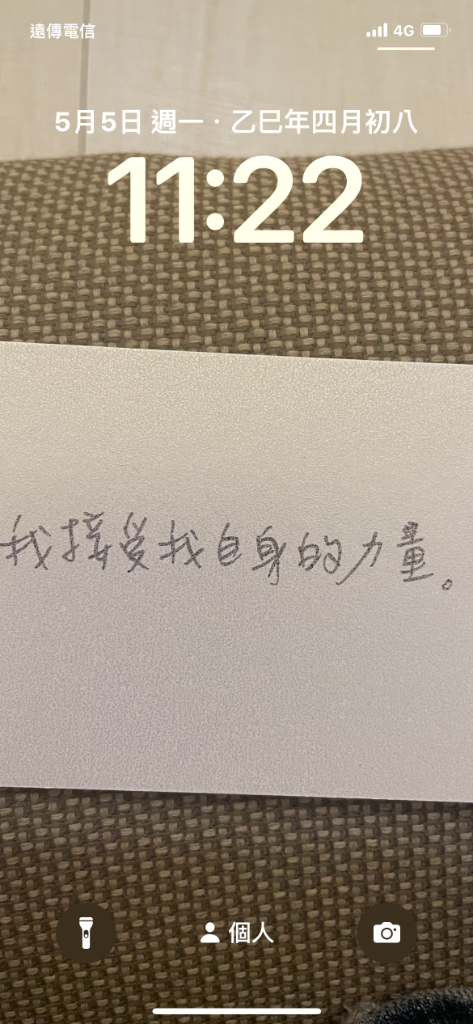 遠傳電信 4G
5月5日 週一 · 乙巳年四月初八
11:22
我接受我自身的力量。
個人